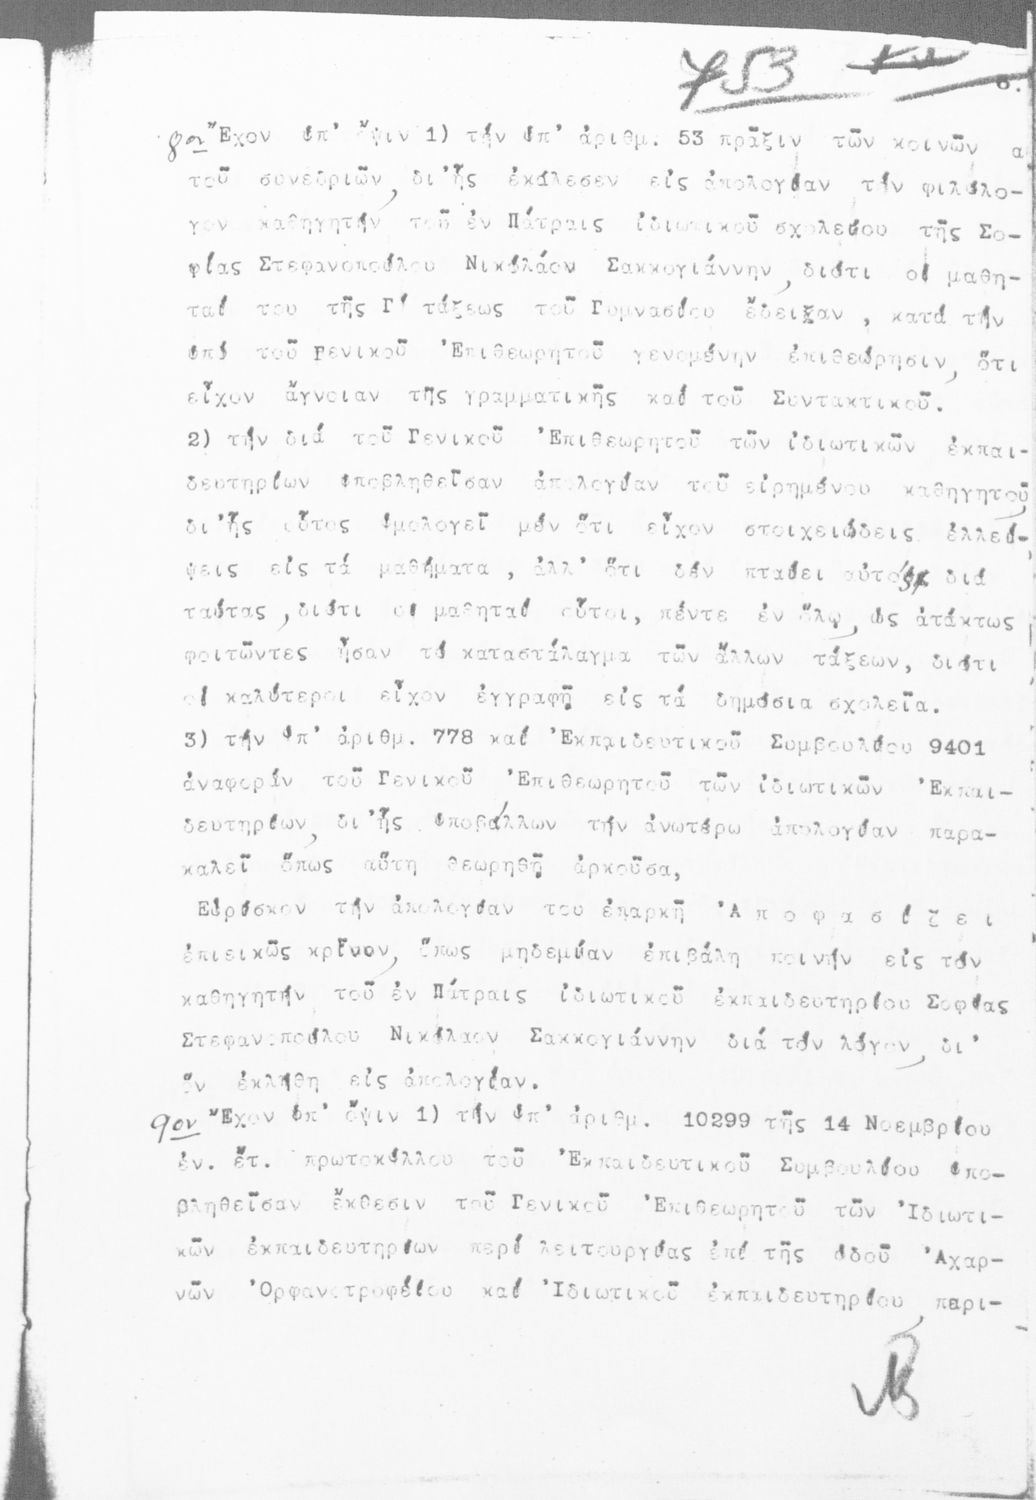 753
6.
8ον Ἔχον ὑπ' ὄψιν 1) τήν ὑπ' ἀριθμ. 53 πρᾶξιν τῶν κοινῶν α
τοῦ συνεδριῶν, δι'ἧς ἐκάλεσεν εἰς ἀπολογίαν τήν φιλόλο-
γον καθηγητήν τοῦ ἐν Πάτραις ἰδιωτικοῦ σχολείου τῆς Σο-
φίας Στεφανοπούλου Νικόλάον Σακκογιάννην, διότι οἱ μαθη-
ταί του τῆς Γ' τάξεως τοῦ Γυμνασίου ἔδειξαν , κατά τήν
ὑπό τοῦ Γενικοῦ Ἐπιθεωρητοῦ γενομένην ἐπιθεώρησιν, ὅτι
εἶχον ἄγνοιαν τῆς γραμματικῆς καί τοῦ Συντακτικοῦ.
2) τήν διά τοῦ Γενικοῦ Ἐπιθεωρητοῦ τῶν ἰδιωτικῶν ἐκπαι-
δευτηρίων ὑποβληθεῖσαν ἀπολογίαν τοῦ εἰρημένου καθηγητοῦ,
δι'ἧς οὗτος ὁμολογεῖ μέν ὅτι εἶχον στοιχειώδεις ἐλλεί-
ψεις εἰς τά μαθήματα , ἀλλ' ὅτι δέν πταίει αὐτός διά
ταύτας ,διότι οἱ μαθηταί οὗτοι, πέντε ἐν ὅλῳ, ὡς ἀτάκτως
φοιτῶντες ἦσαν τό καταστάλαγμα τῶν ἄλλων τάξεων, διότι
οἱ καλύτεροι εἶχον ἐγγραφῇ εἰς τά δημόσια σχολεῖα.
3) τήν ὑπ' ἀριθμ. 778 καί Ἐκπαιδευτικοῦ Συμβουλίου 9401
ἀναφοράν τοῦ Γενικοῦ Ἐπιθεωρητοῦ τῶν ἰδιωτικῶν Ἐκπαι-
δευτηρίων, δι'ἧς ὑποβάλλων τήν ἀνωτέρω ἀπολογίαν παρα-
καλεῖ ὅπως αὕτη θεωρηθῇ ἀρκοῦσα,
Εὑρίσκον τήν ἀπολογίαν του ἐπαρκῆ Ἀ π ο φ α σ ί ζ ε ι
ἐπιεικῶς κρῖνον, ὅπως μηδεμίαν ἐπιβάλη ποινήν εἰς τόν
καθηγητήν τοῦ ἐν Πάτραις ἰδιωτικοῦ ἐκπαιδευτηρίου Σοφίας
Στεφανοπούλου Νικόλαον Σακκογιάννην διά τόν λόγον, δι'
ὅν ἐκλήθη εἰς ἀπολογίαν.
9ον Ἔχον ὑπ' ὄψιν 1) τήν ὑπ' ἀριθμ. 10299 τῆς 14 Νοεμβρίου
ἐν. ἔτ. πρωτοκόλλου τοῦ Ἐκπαιδευτικοῦ Συμβουλίου ὑπο-
βληθεῖσαν ἔκθεσιν τοῦ Γενικοῦ Ἐπιθεωρητοῦ τῶν Ἰδιωτι-
κῶν ἐκπαιδευτηρίων περί λειτουργίας ἐπί τῆς ὁδοῦ Ἀχαρ-
νῶν Ὀρφανοτροφείου καί Ἰδιωτικοῦ ἐκπαιδευτηρίου, περι-